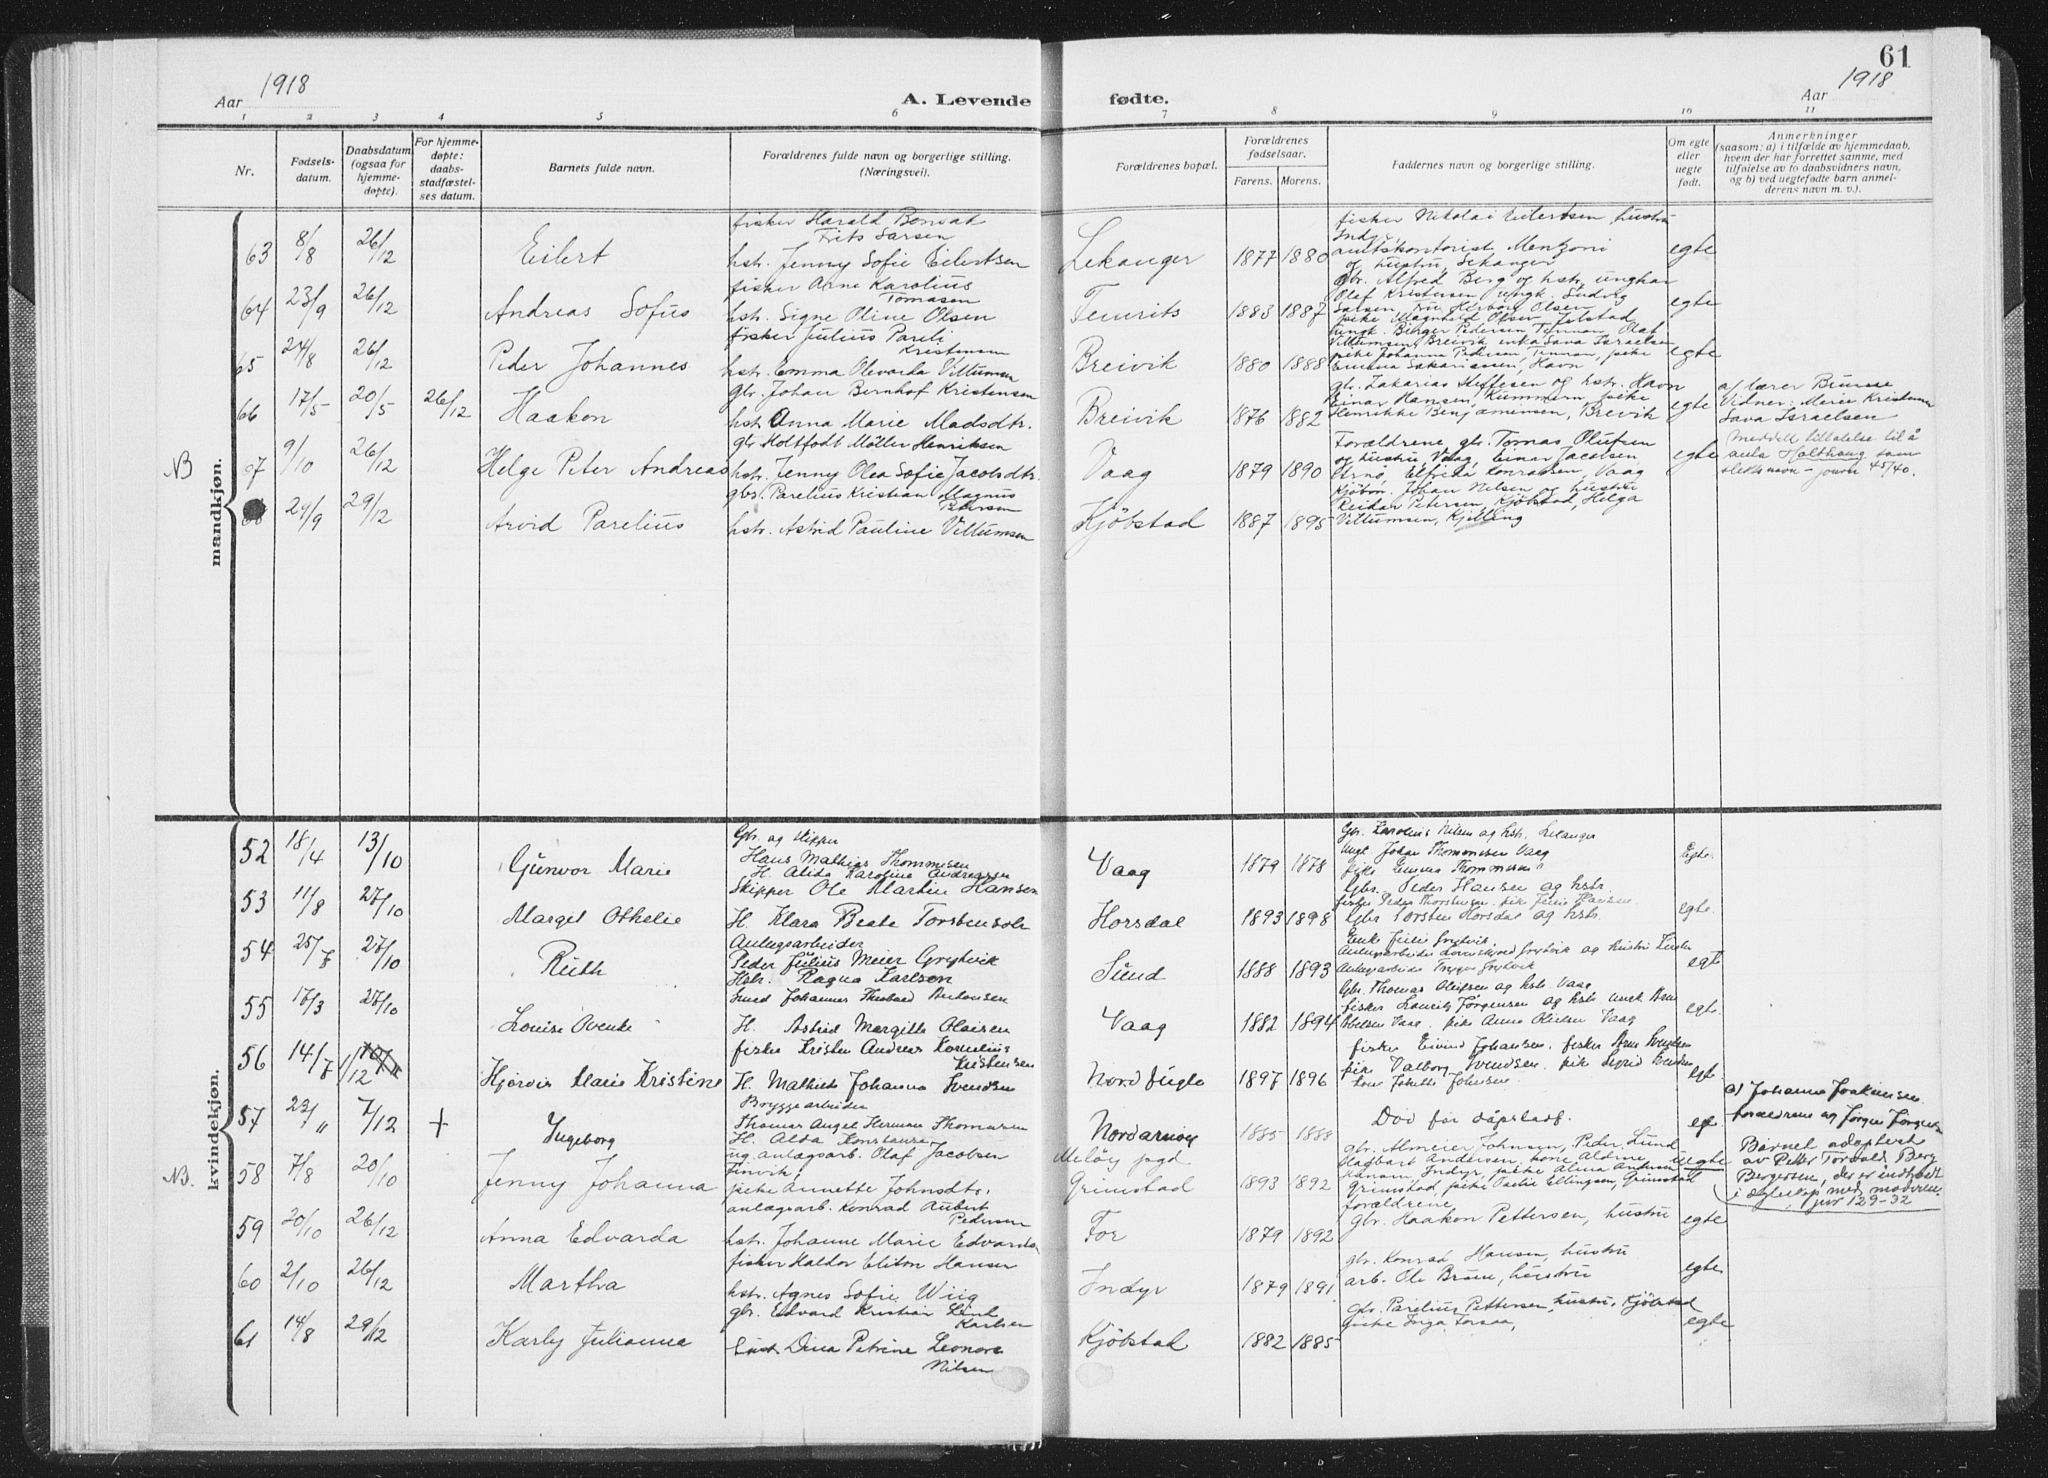 61
Aar 1918
A. Levende fødte.
Aar 1918
1 2 3 4 5 6 7 8 9 10 11
Nr.
Fødselsdatum.
Daabsdatum (ogsaa for hjemmedøpte).
For hjemmedøpte: daabsstadfæstelses datum.
Barnets fulde navn.
Forældrenes fulde navn og borgerlige stilling. (Næringsvei).
Forældrenes bopæl.
Forældrenes fødselsaar.
Farens. Morens.
Faddernes navn og borgerlige stilling.
Om egte eller uegte født.
Anmerkninger
(saasom: a) i tilfælde av hjemmedaab, hvem der har forrettet samme, med tilføielse av to daabsvidners navn, og b) ved uegtefødte barn anmelderens navn m. v.).
mandkjøn.
63 8/8 26/12 Eilert
fisker Harald Bonsak
Frits Larsen
hstr. Jenny Sofie Eilertsen
Lekanger 1877 1880
fisker Nikolai Eilertsen, hustru
Indyr
amtskontorist Mentzoni
og hustru, Lekanger
egte
64 23/9 26/12 Andreas Sofus
fisker Arne Karolius
Tomasen
hstr. Signe Oline Olsen
1883 1887
gbr. Alfred Berg og hstr, ungkar
Olaf Kristensen, ungk. Ludvig
egte
65 24/8 26/12 Peder Johannes
fisker Julius Pareli
Kristensen
hstr. Emma Olevarda Villumsen
Breivik 1880 1888
ungk. Birger Pedersen, Tennan, Olaf
Villumsen, Breivik enke Sava Israelsen
pike Johanna Pedersen, Tennan, pike
Emma Sakariassen, Havn
egte
66 17/5 20/5 26/12 Haakon
gbr. Johan Bernhof Kristensen
hstr. Anna Marie Madsdtr.
Breivik 1876 1882
gbr. Zakarias Steffesen og hstr. Havn
Einar Hansen, Kummern, pike
Henrikke Benjamensen, Breivik
egte
a/ lærer Bruun
Vidner: Marie Kristensen
Sava Israelsen
NB 67 9/10 26/12 Helge Peter Andreas
gbr Holtfodt Møller Henriksen
hstr. Jenny Olea Sofie Jacobsdtr.
Vaag 1879 1890
Forældrene, gbr. Tomas Olufsen
og hustru Vaag, Einar Jacobsen
Arnø, Elfrida Konradsen, Vaag
egte
meddelt tillatelse til å
anta Holthaug som
slektsnavn – journ 45/40.
24/9 29/12 Arvid Parelius
gbr. Parelius Kristian Magnus
Petersen
hstr. Astrid Pauline Villumsen
Kjøbstad 1887 1895
Kjøbm. Johan Nilsen og hustru
Reidar Petersen, Kjøbstad, Helga
Villumsen, Kjelling
kvindekjøn.
52 18/4 13/10 Gunvor Marie
Gbr. og skipper
Hans Mathias Thommesen
H. Alida Karoline Andreassen
Vaag 1879 1878
Gbr. Karolius Nilsen og hstr. Lekanger
Ungk. Johan Thommesen Vaag
pike Emma Thommesen
Egte.
53 11/8 27/10 Marget Othelie
Skipper Ole Martin Hansen
H. Klara Beate Torstensdtr
Horsdal 1893 1898
Gbr. Peder Hansen og hstr.
fisker Peder Thorstensen. pike Julie Hansen.
Gbr Torsten Horsdal og hstr.
egte.
54 25/8 27/10 Ruth
Anlægsarbeider
Peder Julius Meier Grytvik
Hstr. Ragna Karlsen
Sund 1888 1893
Enke Julie Grytvik.
Anlægsarbeider Trygve Grytvik
egte
55 17/3 27/10 Louise Ovenke
Smed Johannes Theobald Antonsen
H. Astrid Margitte Olaisen
Vaag 1882 1894
Gbr. Thomas Olufsen og hstr. Vaag
fisker Lauritz Jørgensen og hstr. ungk Arne
Vaag. pike Anna Olufsen Vaag
egte.
56 14/8 1/12 Hjørdis Marie Kristine
fisker Kristen Andreas Kornelius
Kristensen
H. Mathilde Johanna Svendsen
Nordfugle 1897 1896
fisker Eivind Johansen. fisker Arne Svendsen
pike Valborg Svendsen. pike Sigrid Svendsen
egte
57 23/11 7/12 + Ingeborg
Bryggearbeider
Thomas Angel Herman Thomassen
H. Alda Konstanse
Nordarnøy 1885 1888
Død før dåpstadf.
egt
a) Johanna Joakimsen
forældrene og Jørgen Jørgensen
NB. 58 7/8 20/10 Jenny Johanna
ug. anlægsarb. Olaf Jacobsen
Finvik,
pike Annette Johnsdtr.
Meløy pgd
Grimstad 1893 1892
gbr. Almeier Johnsen, Peder Lund
Dagbart Andersen, kone Aldine
Indyr, pike Alma Antonsen
Grimstad, pike Petra Ellingsen, Grimstad
uegte
Barnet adoptert
av Petter Torvald Berg
Bergersen, der er indtraadt
i egteskap med moderen.
jnr 129-32
59 20/10 26/12 Anna Edvarda
anlægsarb. Konrad Aubert
Pedersen
hstr. Johanne Marie Edvardsd
For 1879 1892
forældrene,
gbr. Haakon Pettersen, hustru
egte
60 2/10 26/12 Martha
fisker Haldor Eliton Hansen
hstr. Agnes Sofie Wiig
Indyr 1879 1891
gbr. Konrad Hansen, hustru
arb. Ole Bruun, hustru
egte
61 14/8 29/12 Karly Julianna
gbr. Edvard Kristian Lind
Karlsen
Dina Petrine Leonora
Nilsen
Kjøbstad 1882 1885
gbr. Parelius Pettersen, hustru, Kjøbstad
pike Inga Torsaa,
egte